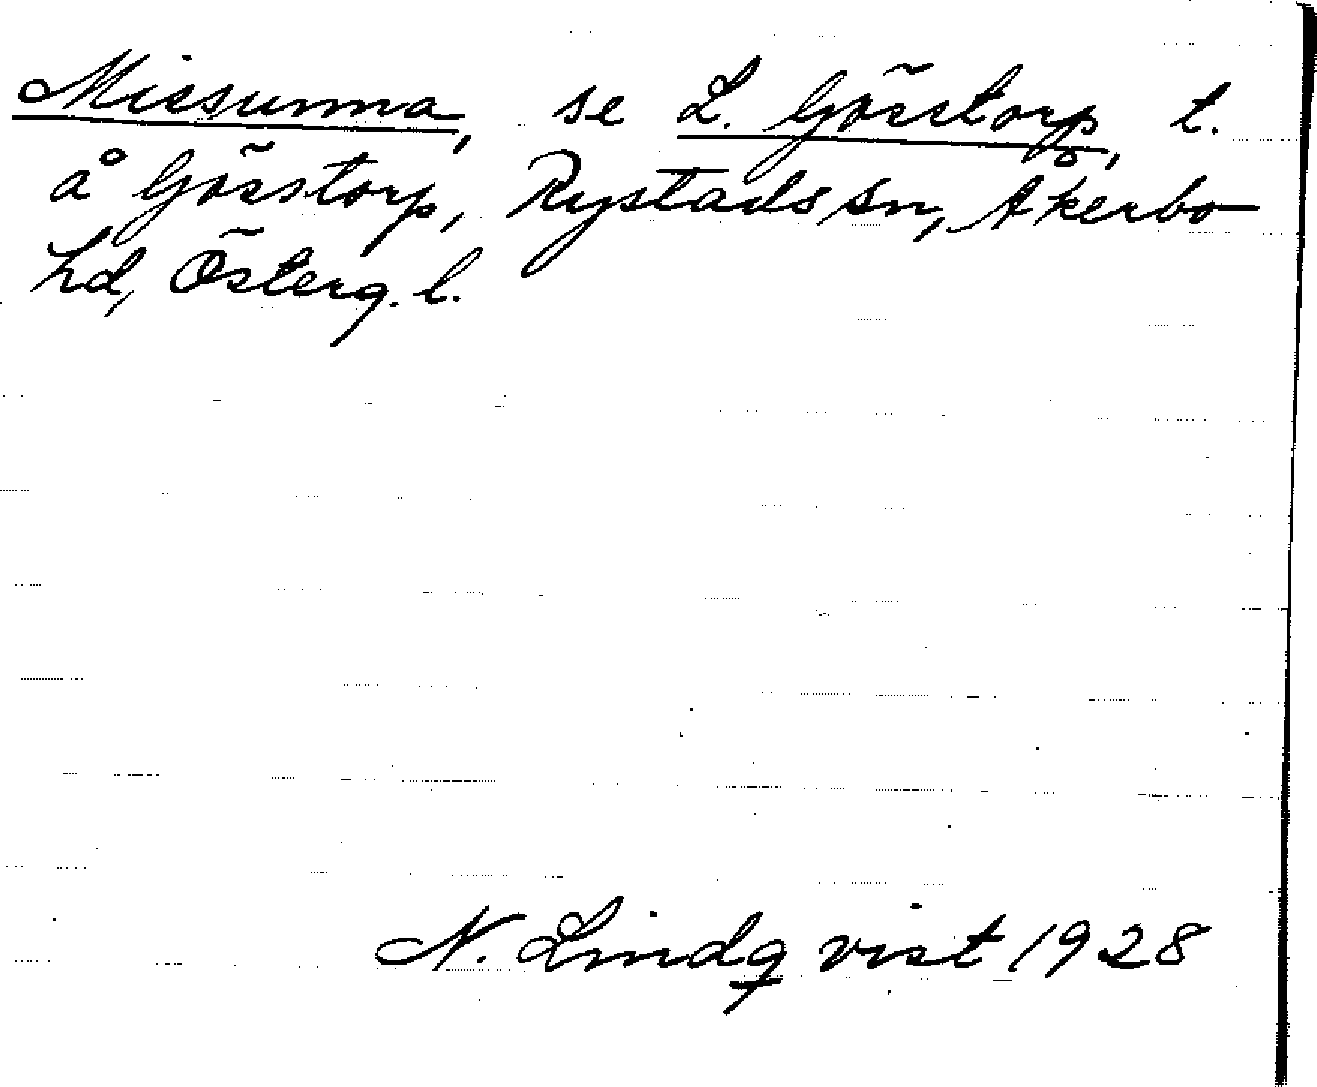 Missunna, se L. Gösstorp, t.
å Gösstorp, Rystads sn, Åkerbo
hd, Österg. l.
N. Lindqvist 1928